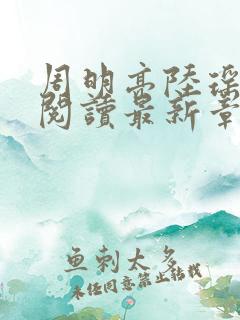 周明高陸瑤
閱讀最新章
鱼刺太多
未经同意禁止转载